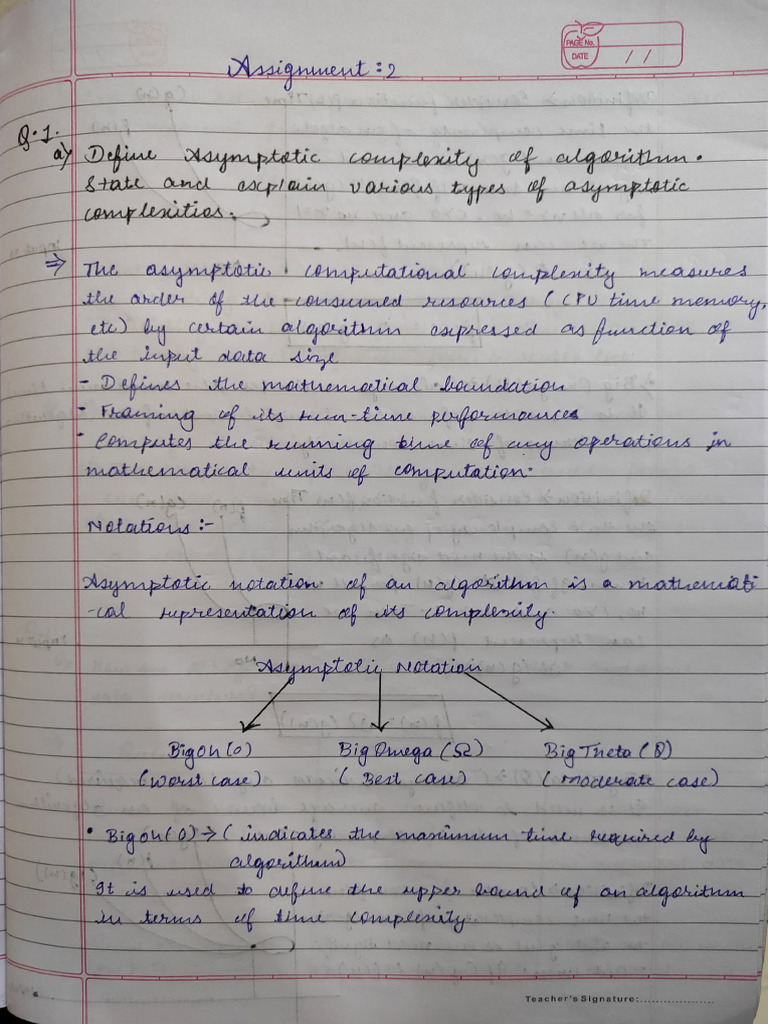 PAGE No.
DATE / /
Assignment : 2
Q.1.
a) Define Asymptotic complexity of algorithm.
State and explain various types of asymptotic
complexities.
⇒ The asymptotic computational complexity measures
the order of the consumed resources ( CPU time memory,
etc) by certain algorithm expressed as function of
the input data size
- Defines the mathematical boundation
- Framing of its run-time performances
- Computes the running time of any operations in
mathematical units of computation.
Notations :-
Asymptotic notation of an algorithm is a mathemati
-cal representation of its complexity.
Asymptotic Notation
Big oh (o) Big Omega (Ω) Big Theta (θ)
(Worst case) ( Best case) ( Moderate case)
• Big oh ( O ) → ( indicates the maximum time required by
algorithm)
It is used to define the upper bound of an algorithm
in terms of time complexity.
Teacher's Signature:....................